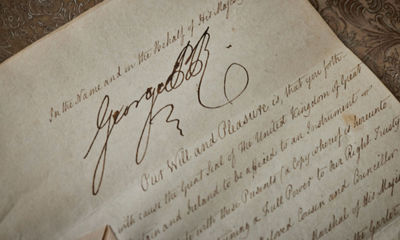 In the Name and on the Behalf of His Majesty
George PR
Our Will and Pleasure is, that you forth-
with cause the Great Seal of the United Kingdom of Great
Britain and Ireland to be affixed to an Instrument
with these Presents (a Copy whereof is hereunto
a Full Power to Our Right Trusty
beloved Cousin and Councillor
Marshal of His Maj
the Garter